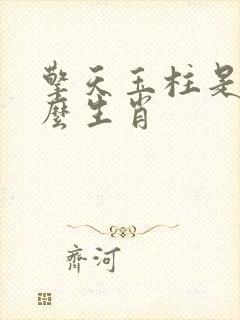 擎天玉柱是
麼生肖
齊河